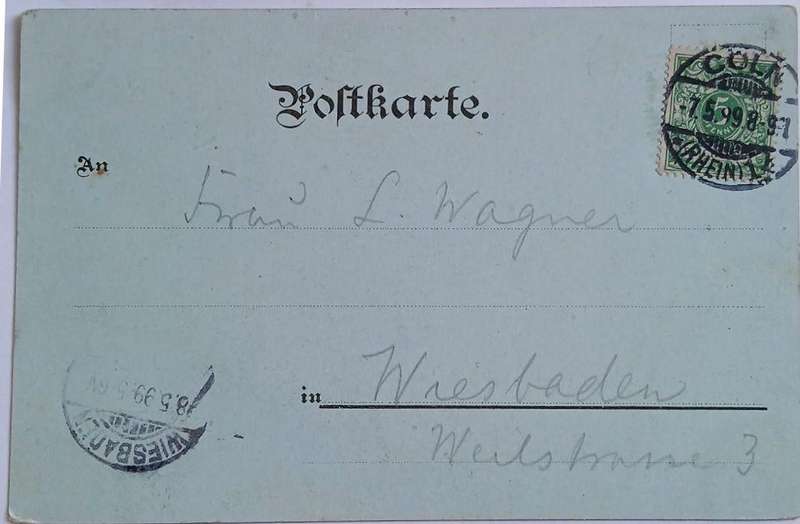 Postkarte.
CÖLN
5
-7.5.99.8-9
(RHEIN) 1
An
Frau L. Wagner
in Wiesbaden
Weilstrasse 3
8.5.99.5-6V
WIESBADEN